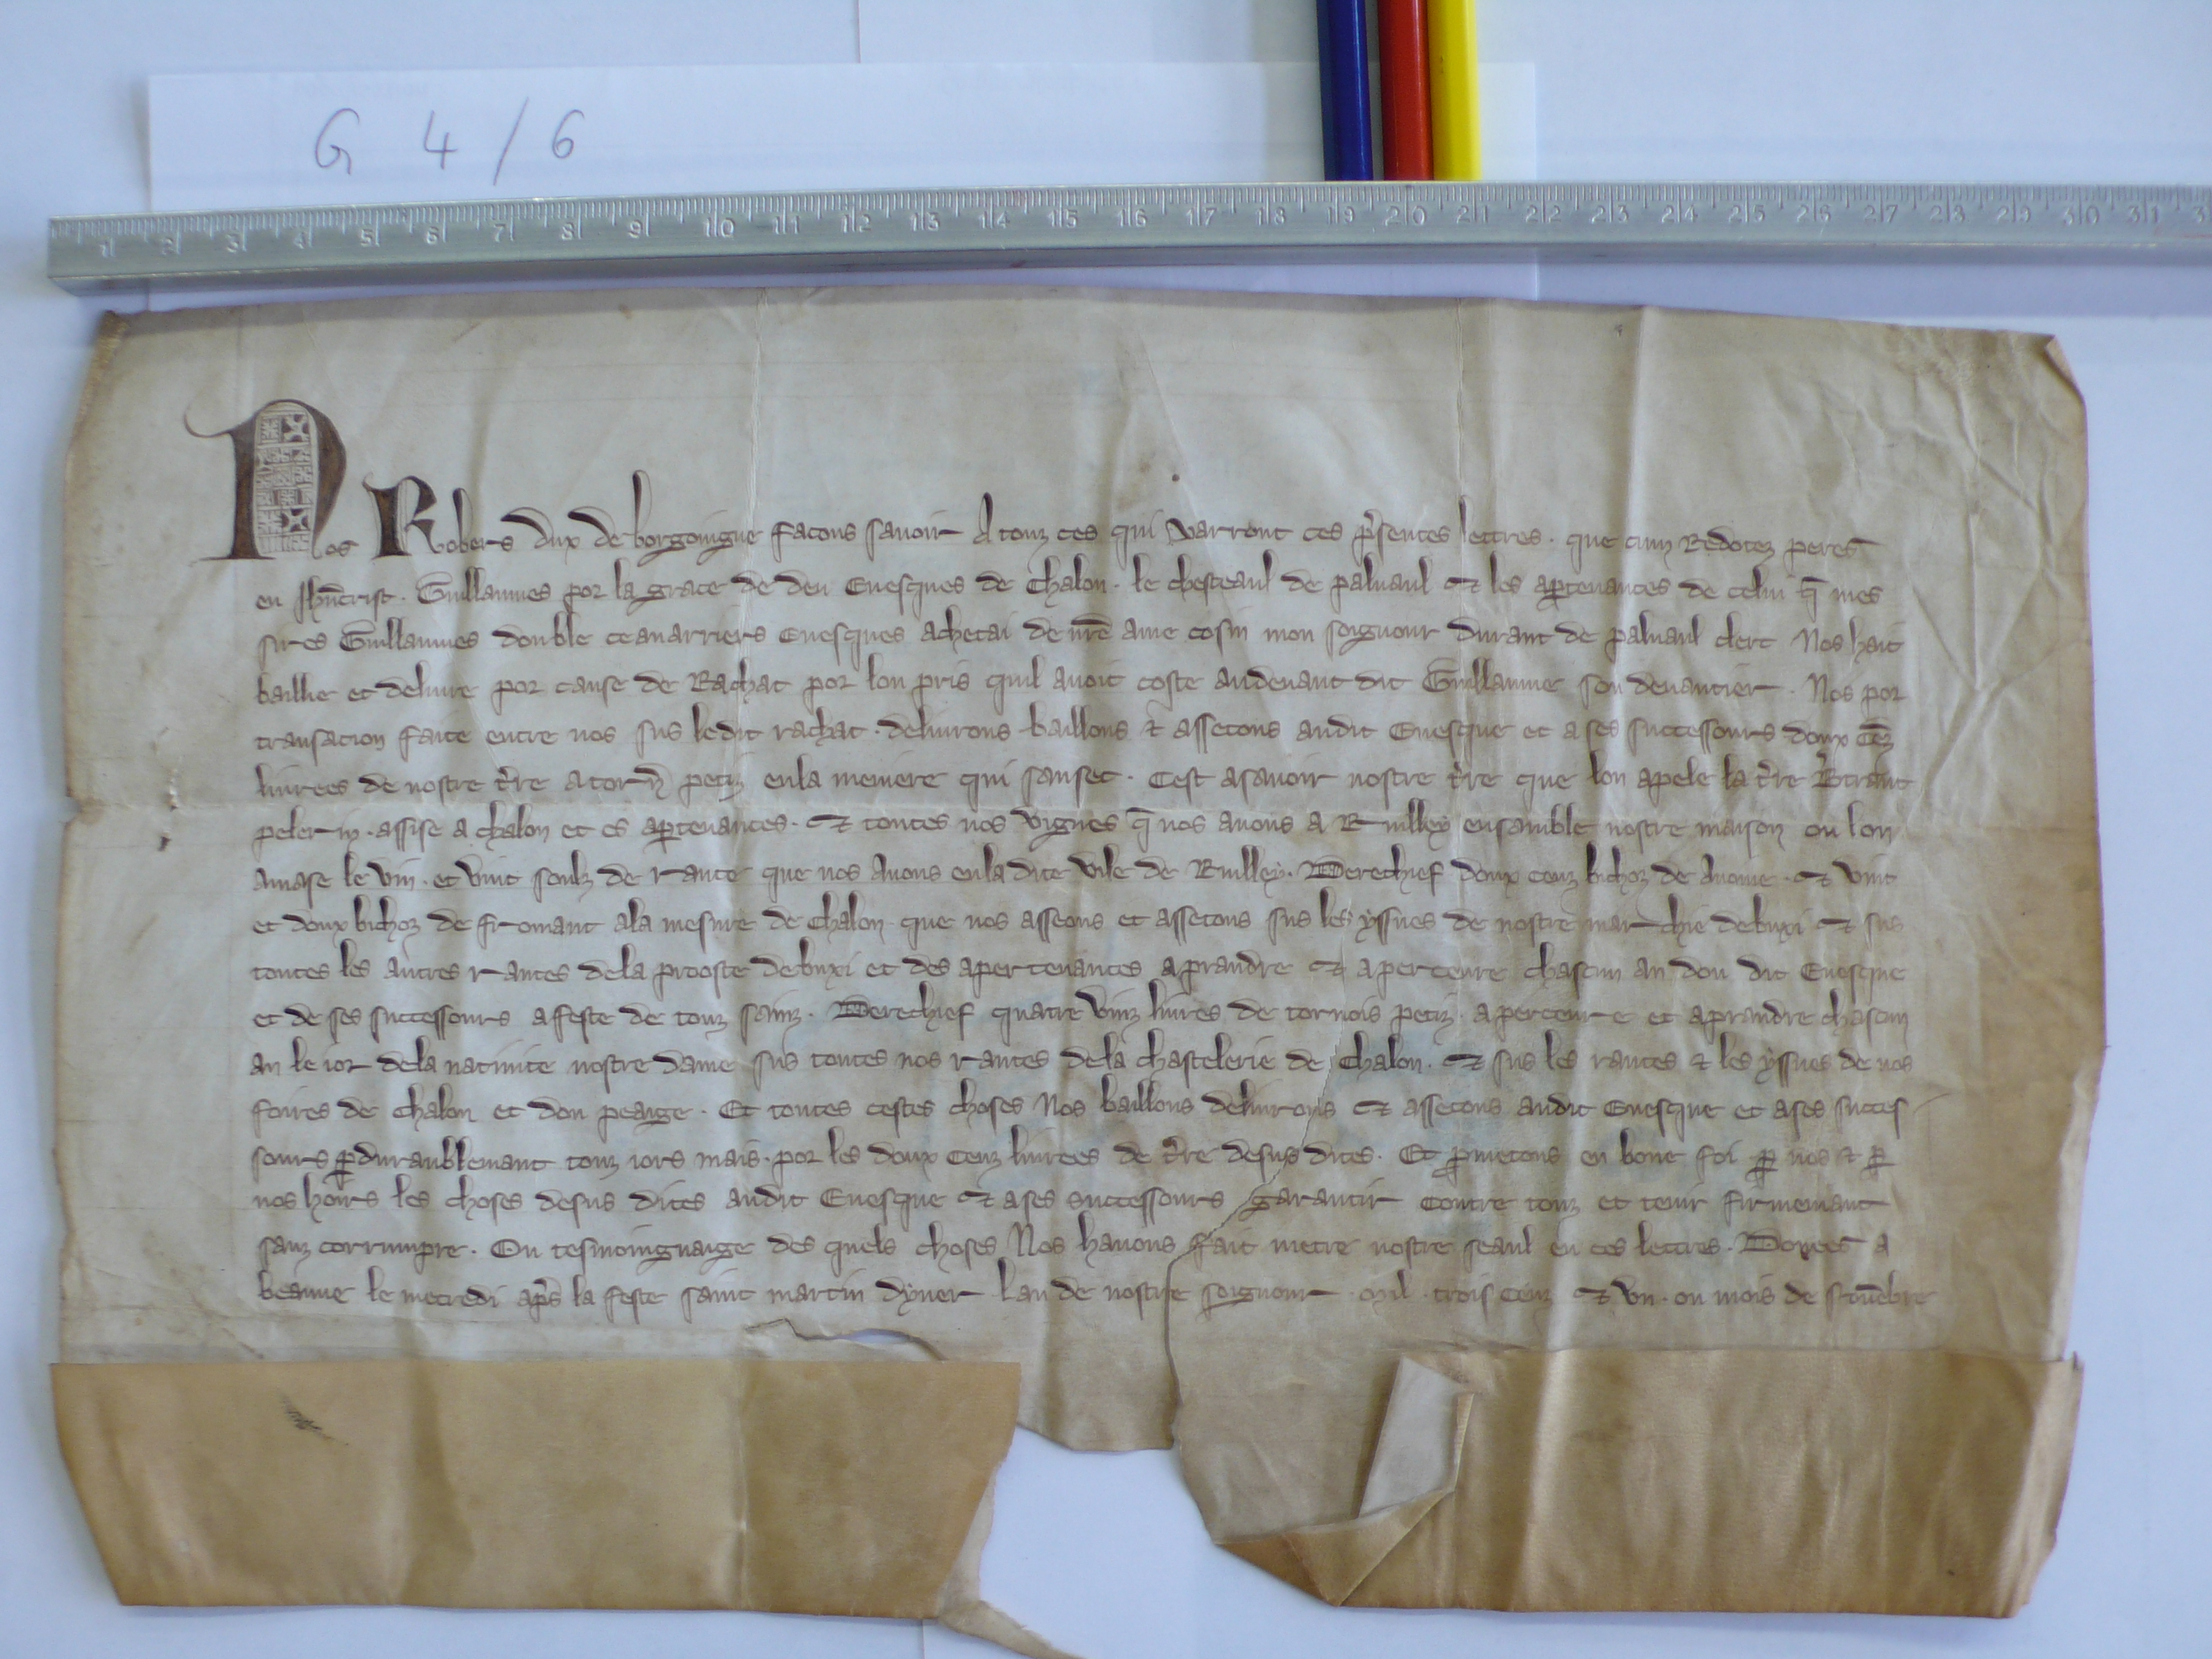 G 4 / 6
1 2 3 4 5 6 7 8 9 10 11 12 13 14 15 16 17 18 19 20 21 22 23 24 25 26 27 28 29 30 31 3
Nos Robers dux de borgoingne facons sauoir A touz ces qui varront ces p̾sentes lettres . que cum Redotez peres
en Jhūcrist . Guillaumes por la grace de deu Euesques de Chalon . le chesteaul de paluaul et les apartenances de celui q̄ mes
sires Guillaumes double ceanarriers euesques achetai de nr̄e ame cosin mon soignour durant de paluaul clerc Nos hait
baillie et deliure por cause de Rachat por lon pris quil auoit coste audeuant dit Guillaume son deuantier . Nos por
transacion faite entre nos sus ledit rachat . deliurons baillons et assetons audit Euesque et a ses successours doux Cēz
liurees de nostre t̾re a torn̄ petiz enla meniere qui sanset . Cest asauoir nostre t̾re que lon apele la t̾re B̾trant
pelerin . assise a chalon et es apartenances . et toutes nos vignes q̄ nos auons a Ruilley ensamble nostre maison ou lon
amase le vin . et vint soulz de rante que nos Auons enla dite vile de Ruilley . Derechief doux cenz bichoz de Auoine . et vint
et doux bichoz de fromant ala mesure de Chalon . que nos asseons et assetons sus les yssues de nostre marchie debuxi et sus
toutes les autres rantes dela prooste debuxi et des apertenances a prandre et a perceure chascun an dou dit Euesque
et de ses successours a feste de touz sainz . Derechief quatre vinz liures de tornois petiz . a perceure et aprandre chascun
an le ior dela natiuite nostre dame sus toutes nos rantes dela chastelerie de Chalon . et sus les rantes et les yssues de nos
foires de chalon et dou peaige . Et toutes cestes choses Nos baillons deliurons et assetons audit Euesque et ases succes
sours ꝑduraublemant touz iors mais . por les doux cenz liurees de t̾re desus dites . Et ꝓmetons en bone foi . ꝑ nos et ꝑ
nos hoirs les choses desus dites audit Euesque et ases successours garantir contre touz et tenir firmemant
sanz corrumpre . Ou tesmoingnaige des quels choses Nos hauons fait metre nostre seaul en ces lettres . Donees a
beaune le mecredi ap̾s la feste saint martin dyuer . Lan de nostre soignour . mil . trois cenz et vn . ou mois de